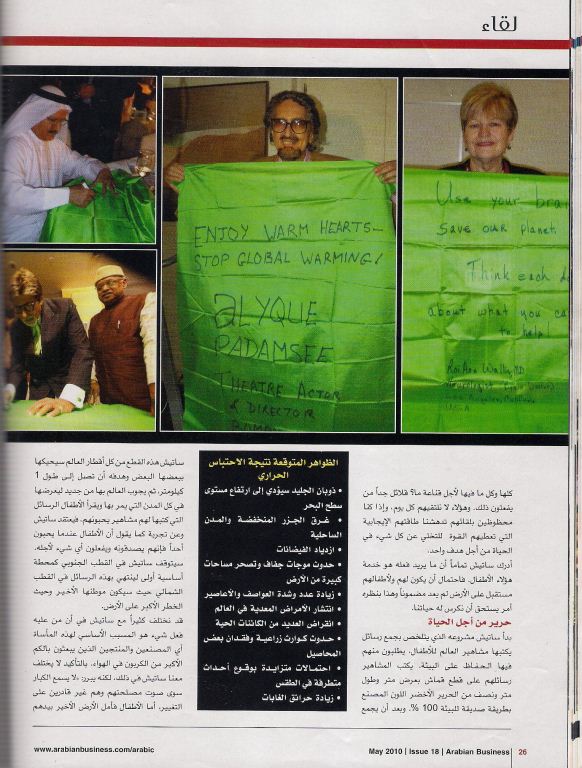 لقاء
ENJOY WARM HEARTS-
STOP GLOBAL WARMING!
ALYQUE
PADAMSEE
THEATRE ACTOR
& DIRECTOR
Use your brai
save our planet.
Think each d
about what you ca
to help!
كلها وكل ما فيها لأجل قناعة ما؟ قلائل جداً من
يفعلون ذلك. وهؤلاء لا نلتقيهم كل يوم، وإذا كنا
محظوظين بلقائهم تدهشنا طاقتهم الإيجابية
التي تعطيهم القوة للتخلي عن كل شيء في
الحياة من أجل هدف واحد.
أدرك ساتيش تماماً أن ما يريد فعله هو خدمة
هؤلاء الأطفال. فاحتمال أن يكون لهم ولأطفالهم
مستقبل على الأرض لم يعد مضموناً وهذا بنظره
أمر يستحق أن نكرس له حياتنا.
حرير من أجل الحياة
بدأ ساتيش مشروعه الذي يتلخص بجمع رسائل
يكتبها مشاهير العالم للأطفال، يطلبون منهم
فيها الحفاظ على البيئة. يكتب المشاهير
رسائلهم على قطع قماش بعرض متر وطول
متر ونصف من الحرير الأخضر اللون المصنع
بطريقة صديقة للبيئة 100 %. وبعد أن يجمع
الظواهر المتوقعة نتيجة الاحتباس
الحراري
• ذوبان الجليد سيؤدي إلى إرتفاع مستوى
سطح البحر
• غرق الجزر المنخفضة والمدن
الساحلية
• ازدياد الفيضانات
• حدوث موجات جفاف وتصحر مساحات
كبيرة من الأرض
• زيادة عدد وشدة العواصف والأعاصير
• انتشار الأمراض المعدية في العالم
• انقراض العديد من الكائنات الحية
• حدوث كوارث زراعية وفقدان بعض
المحاصيل
• احتمالات متزايدة بوقوع أحداث
متطرفة في الطقس
• زيادة حرائق الغابات
ساتيش هذه القطع من كل أقطار العالم سيحيكها
ببعضها البعض وهدفه أن تصل إلى طول 1
كيلومتر، ثم يجوب العالم بها من جديد ليعرضها
في كل المدن التي يمر بها ويقرأ الأطفال الرسائل
التي كتبها لهم مشاهير يحبونهم. فيعتقد ساتيش
وعن تجربة كما يقول أن الأطفال عندما يحبون
أحداً فإنهم يصدقونه ويفعلون أي شيء لأجله.
سيتوقف ساتيش في القطب الجنوبي كمحطة
أساسية أولى لينتهي بهذه الرسائل في القطب
الشمالي حيث سيكون موطنها الأخير وحيث
الخطر الأكبر على الأرض.
قد نختلف كثيراً مع ساتيش في أن من عليه
فعل شيء هو المسبب الأساسي لهذه المأساة
أي المصنعين والمنتجين الذين يبعثون بالكم
الأكبر من الكربون في الهواء. بالتأكيد لا يختلف
معنا ساتيش في ذلك، لكنه يبرر: «لا يسمع الكبار
سوى صوت مصلحتهم وهم غير قادرين على
التغيير. أما الأطفال فأمل الأرض الأخير بيدهم
www.arabianbusiness.com/arabic
May 2010 | Issue 18 | Arabian Business | 26